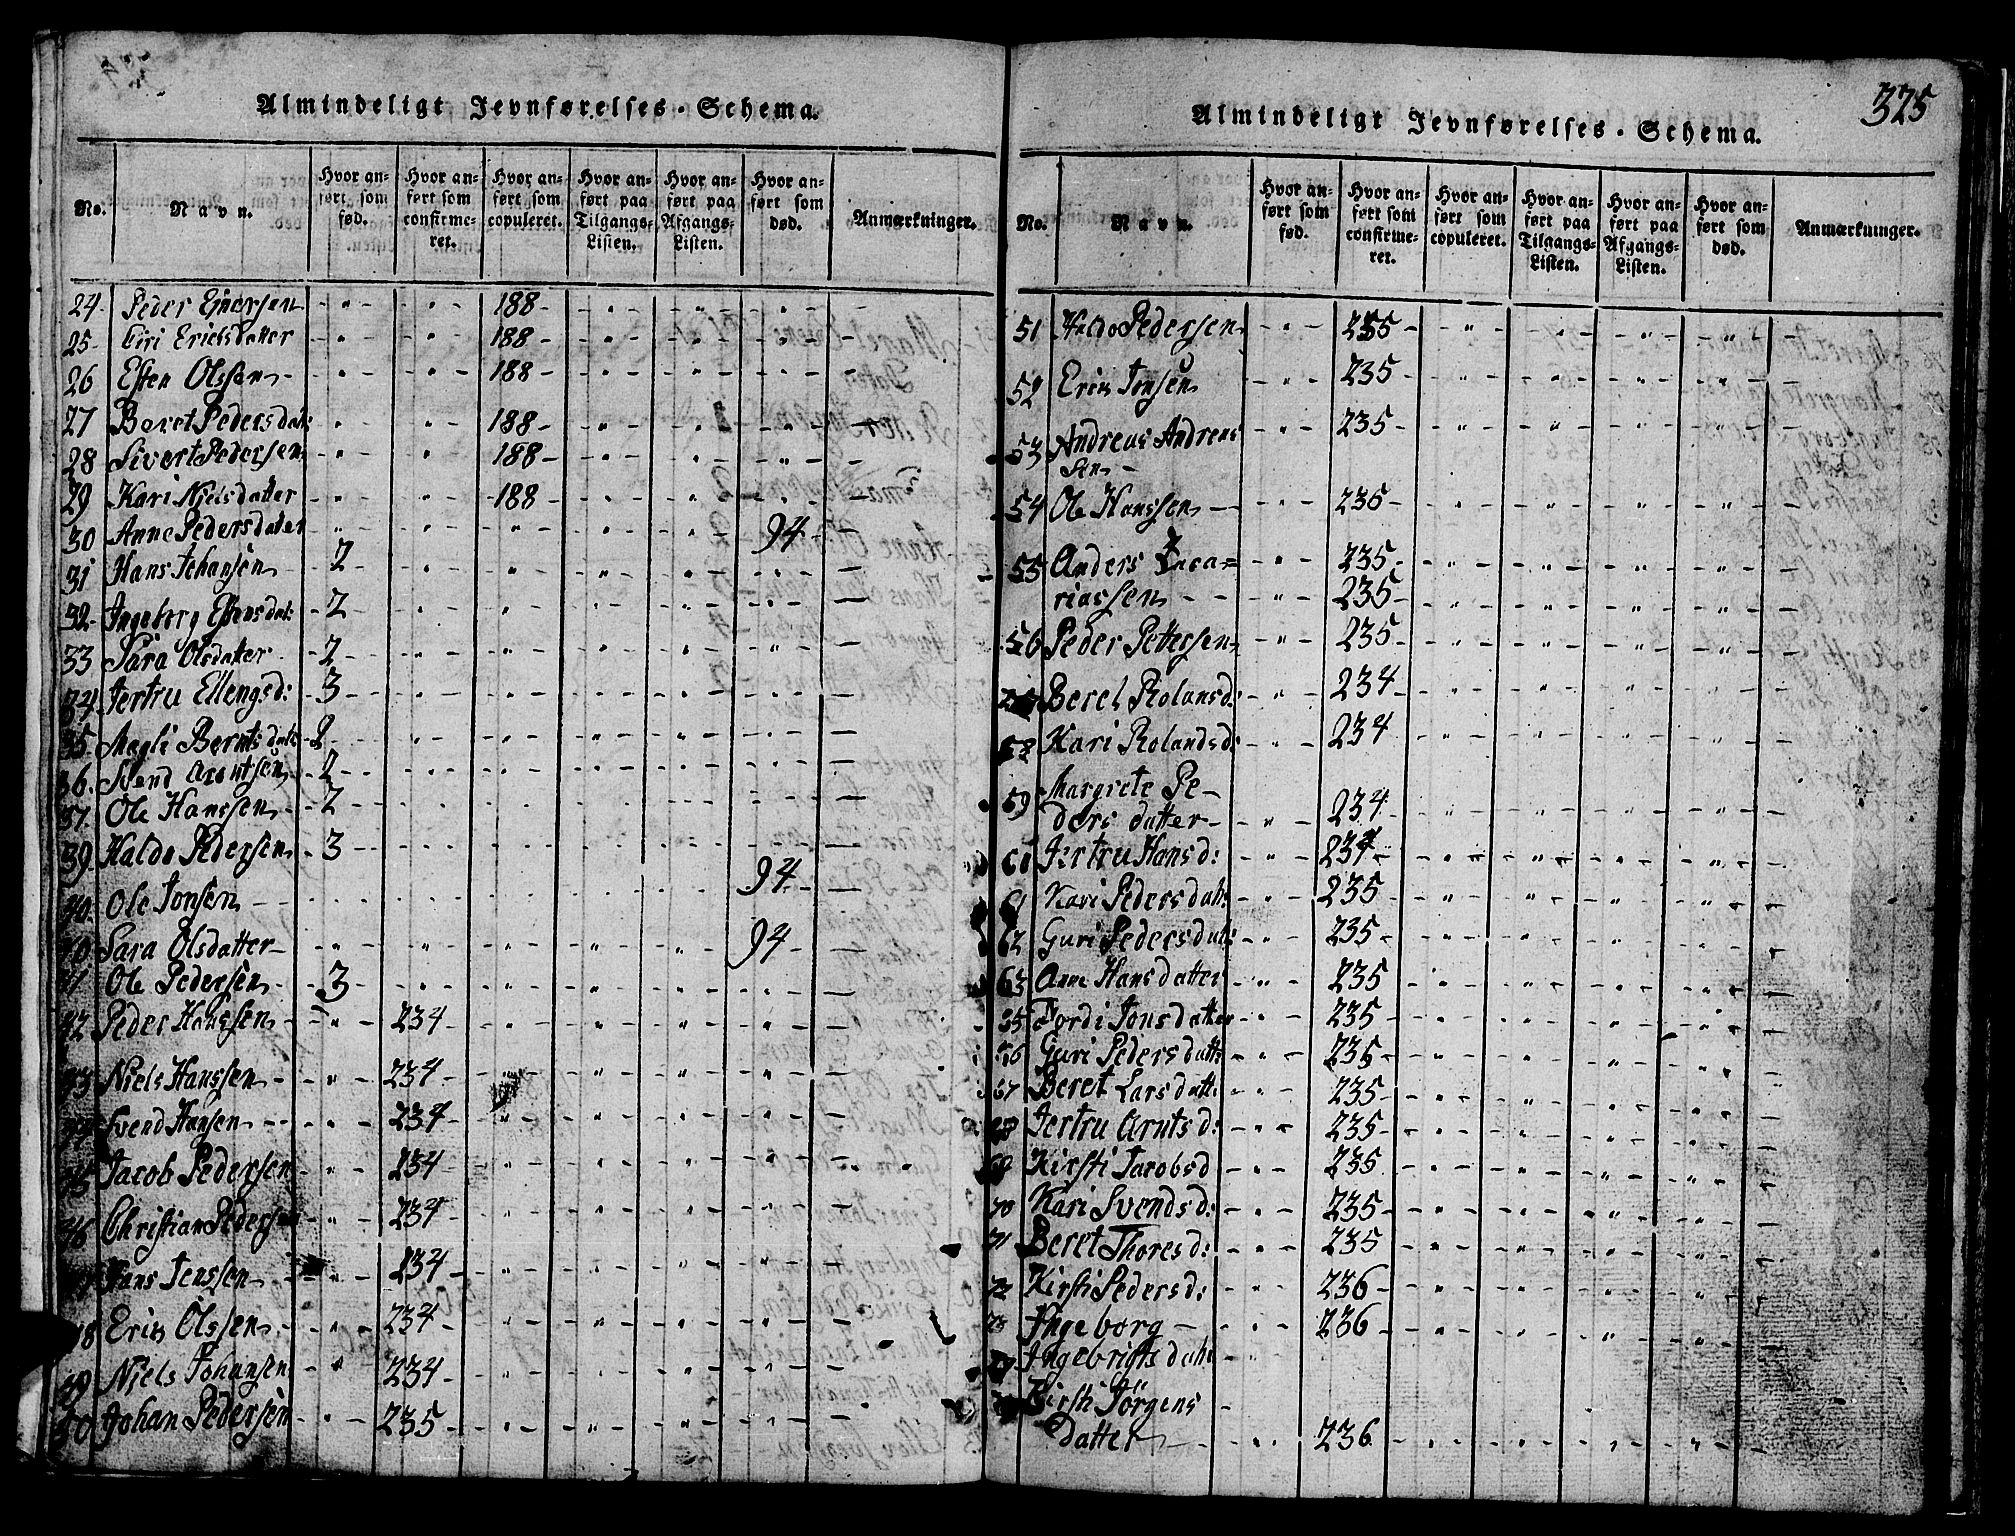 325
Almindeligt Jevnførelses-Schema.
No. Navn. Hvor anført som fød. Hvor anført som confirmeret. Hvor anført som copuleret. Hvor anført paa Tilgangs-Listen. Hvor anført paa Afgangs-Listen. Hvor anført som død. Anmærkninger.
24 Peder Ejnersen 188
25 Giri Erichsdatter 188
26 Esten Olssen 188
27 Beret Pedersdat: 188
28 Sivert Pedersen 188
29 Kari Nielsdatter 188
30 Anne Pedersdatter 94
31 Hans Johansen 2
32 Ingeborg Estensdat: 2
33 Sara Olsdatter 2
34 Jertru Ellengsd: 3
35 Magli Berntsdatt 2
36 Svend Arentsen 2
37 Ole Hanssen 2
39 Haldo Pedersen 3
40 Ole Jonsen 94
40 Sara Olsdatter 94
41 Ole Pedersen 3
42 Peder Hanssen 234
43 Niels Hanssen 234
44 Svend Hansen 234
45 Jacob Pedersen 234
46 Christian Pedersen 234
47 Hans Jenssen 234
48 Erik Olssen 234
49 Niels Johansen 234
50 Johan Pedersen 235
Almindeligt Jevnførelses-Schema.
No. Navn. Hvor anført som fød. Hvor anført som confirmeret. Hvor anført som copuleret. Hvor anført paa Tilgangs-Listen. Hvor anført paa Afgangs-Listen. Hvor anført som død. Anmærkninger.
51 Haldo Pedersen 235
52 Erik Jonsen 235
53 Andreas Andreas
sen 235
54 Ole Hanssen 235
55 Anders 235
riassen 235
56 Peder Pettersen 235
Beret Rolansd: 234
58 Kari Rolandsd: 234
59 Margrete Pe-
dersdatter 234
61 Jertru Hansd: 234
61 Kari Pedersdatt: 235
62 Guri Pedersdatt: 235
63 Anne Hansdatter 235
35 Jonsdatter 235
66 Guri Pedersdatt 235
67 Beret Larsdatt: 235
68 Jertru Arntsd: 235
69 Kirsti Jacobsd 235
70 Kari Svendsd: 235
71 Beret Thoresd: 235
72 Kirsti Pedersd: 236
73 Ingeborg 236
Ingebrigtsdatt
Kirsti Jörgens
datter 236